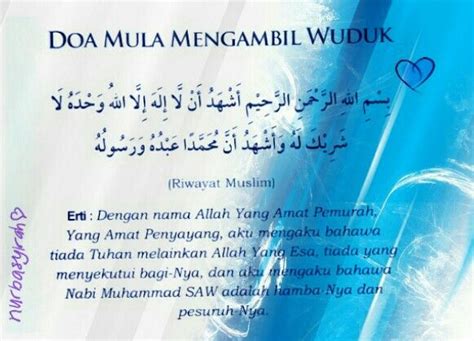 DOA MULA MENGAMBIL WUDUK
بِسْمِ اللهِ الرَّحْمَنِ الرَّحِيْمِ أَشْهَدُ أَنْ لَّا إِلَهَ إِلَّا اللهُ وَحْدَهُ لَا
شَرِيْكَ لَهُ وَأَشْهَدُ أَنَّ مُحَمَّدًا عَبْدُهُ وَرَسُوْلُهُ
(Riwayat Muslim)
Erti : Dengan nama Allah Yang Amat Pemurah,
Yang Amat Penyayang, aku mengaku bahawa
tiada Tuhan melainkan Allah Yang Esa, tiada yang
menyekutui bagi-Nya, dan aku mengaku bahawa
Nabi Muhammad SAW adalah hamba-Nya dan
pesuruh-Nya.